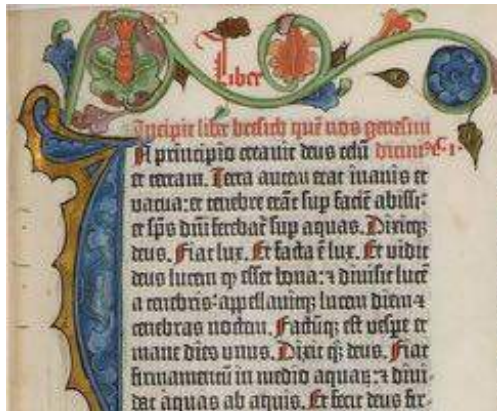 Liber
Incipit liber bresich quē nos genesim
In principio creavit deus celū dicimꝰ C·1·
et terram. Terra autem erat inanis et
vacua: et tenebre erāt sup faciē abissi:
et spūs dn̄i ferebat̄ sup aquas. Dixitqꝫ
deus. Fiat lux. Et facta ē lux. Et vidit
deus lucem ꝙ esset bona: ⁊ divisit lucē
a tenebris· appellavitqꝫ lucem diem ⁊
tenebras noctem. Factūqꝫ est vespe et
mane dies unus. Dixit qꝫ deus. Fiat
firmamentū in medio aquaꝝ: ⁊ divi-
dat aquas ab aquis. Et fecit deus fir-